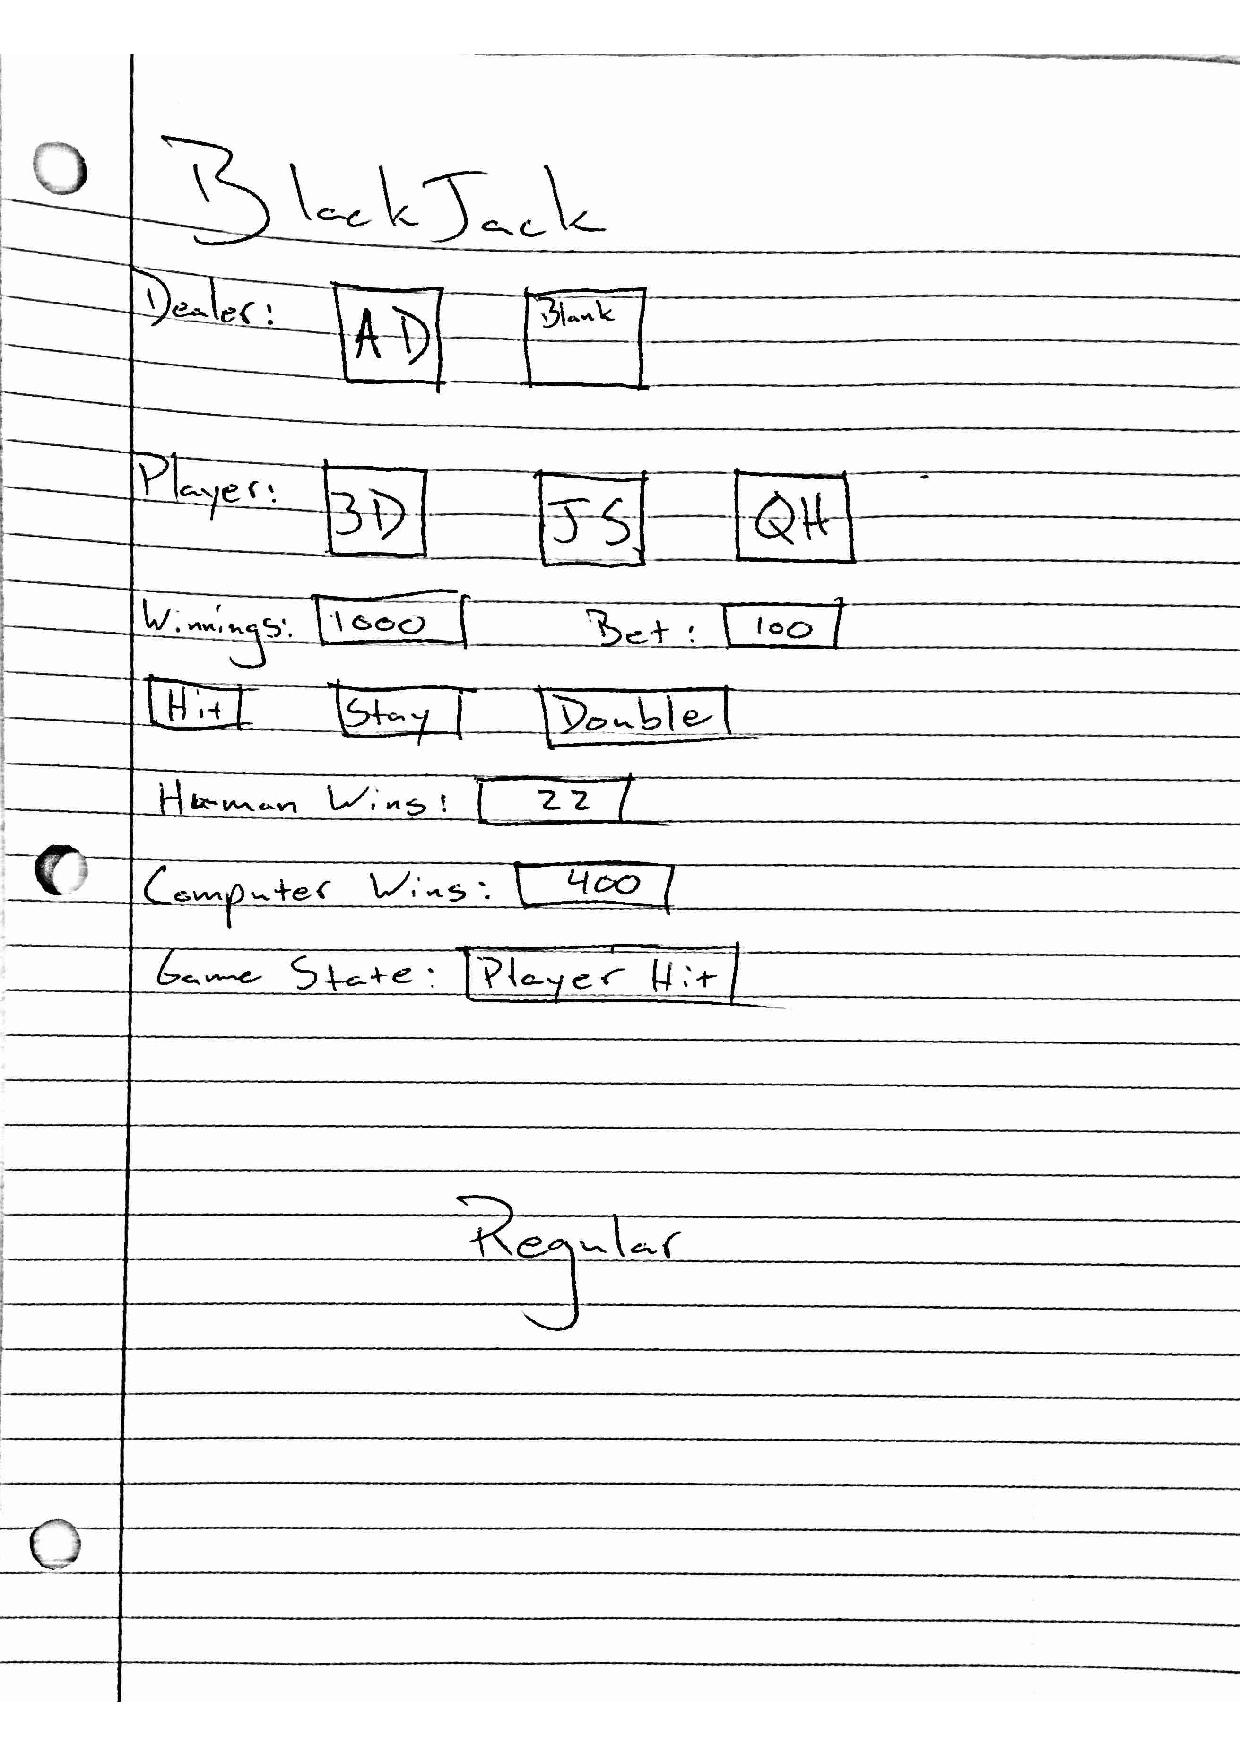 BlackJack
Dealer: AD Blank
Player: 3D JS QH
Winnings: 1000 Bet: 100
Hit Stay Double
Human Wins: 22
Computer Wins: 400
Game State: Player Hit
Regular